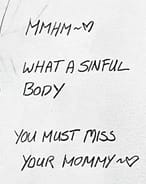 MMHM~♡
WHAT A SINFUL
BODY
YOU MUST MISS
YOUR MOMMY~♡